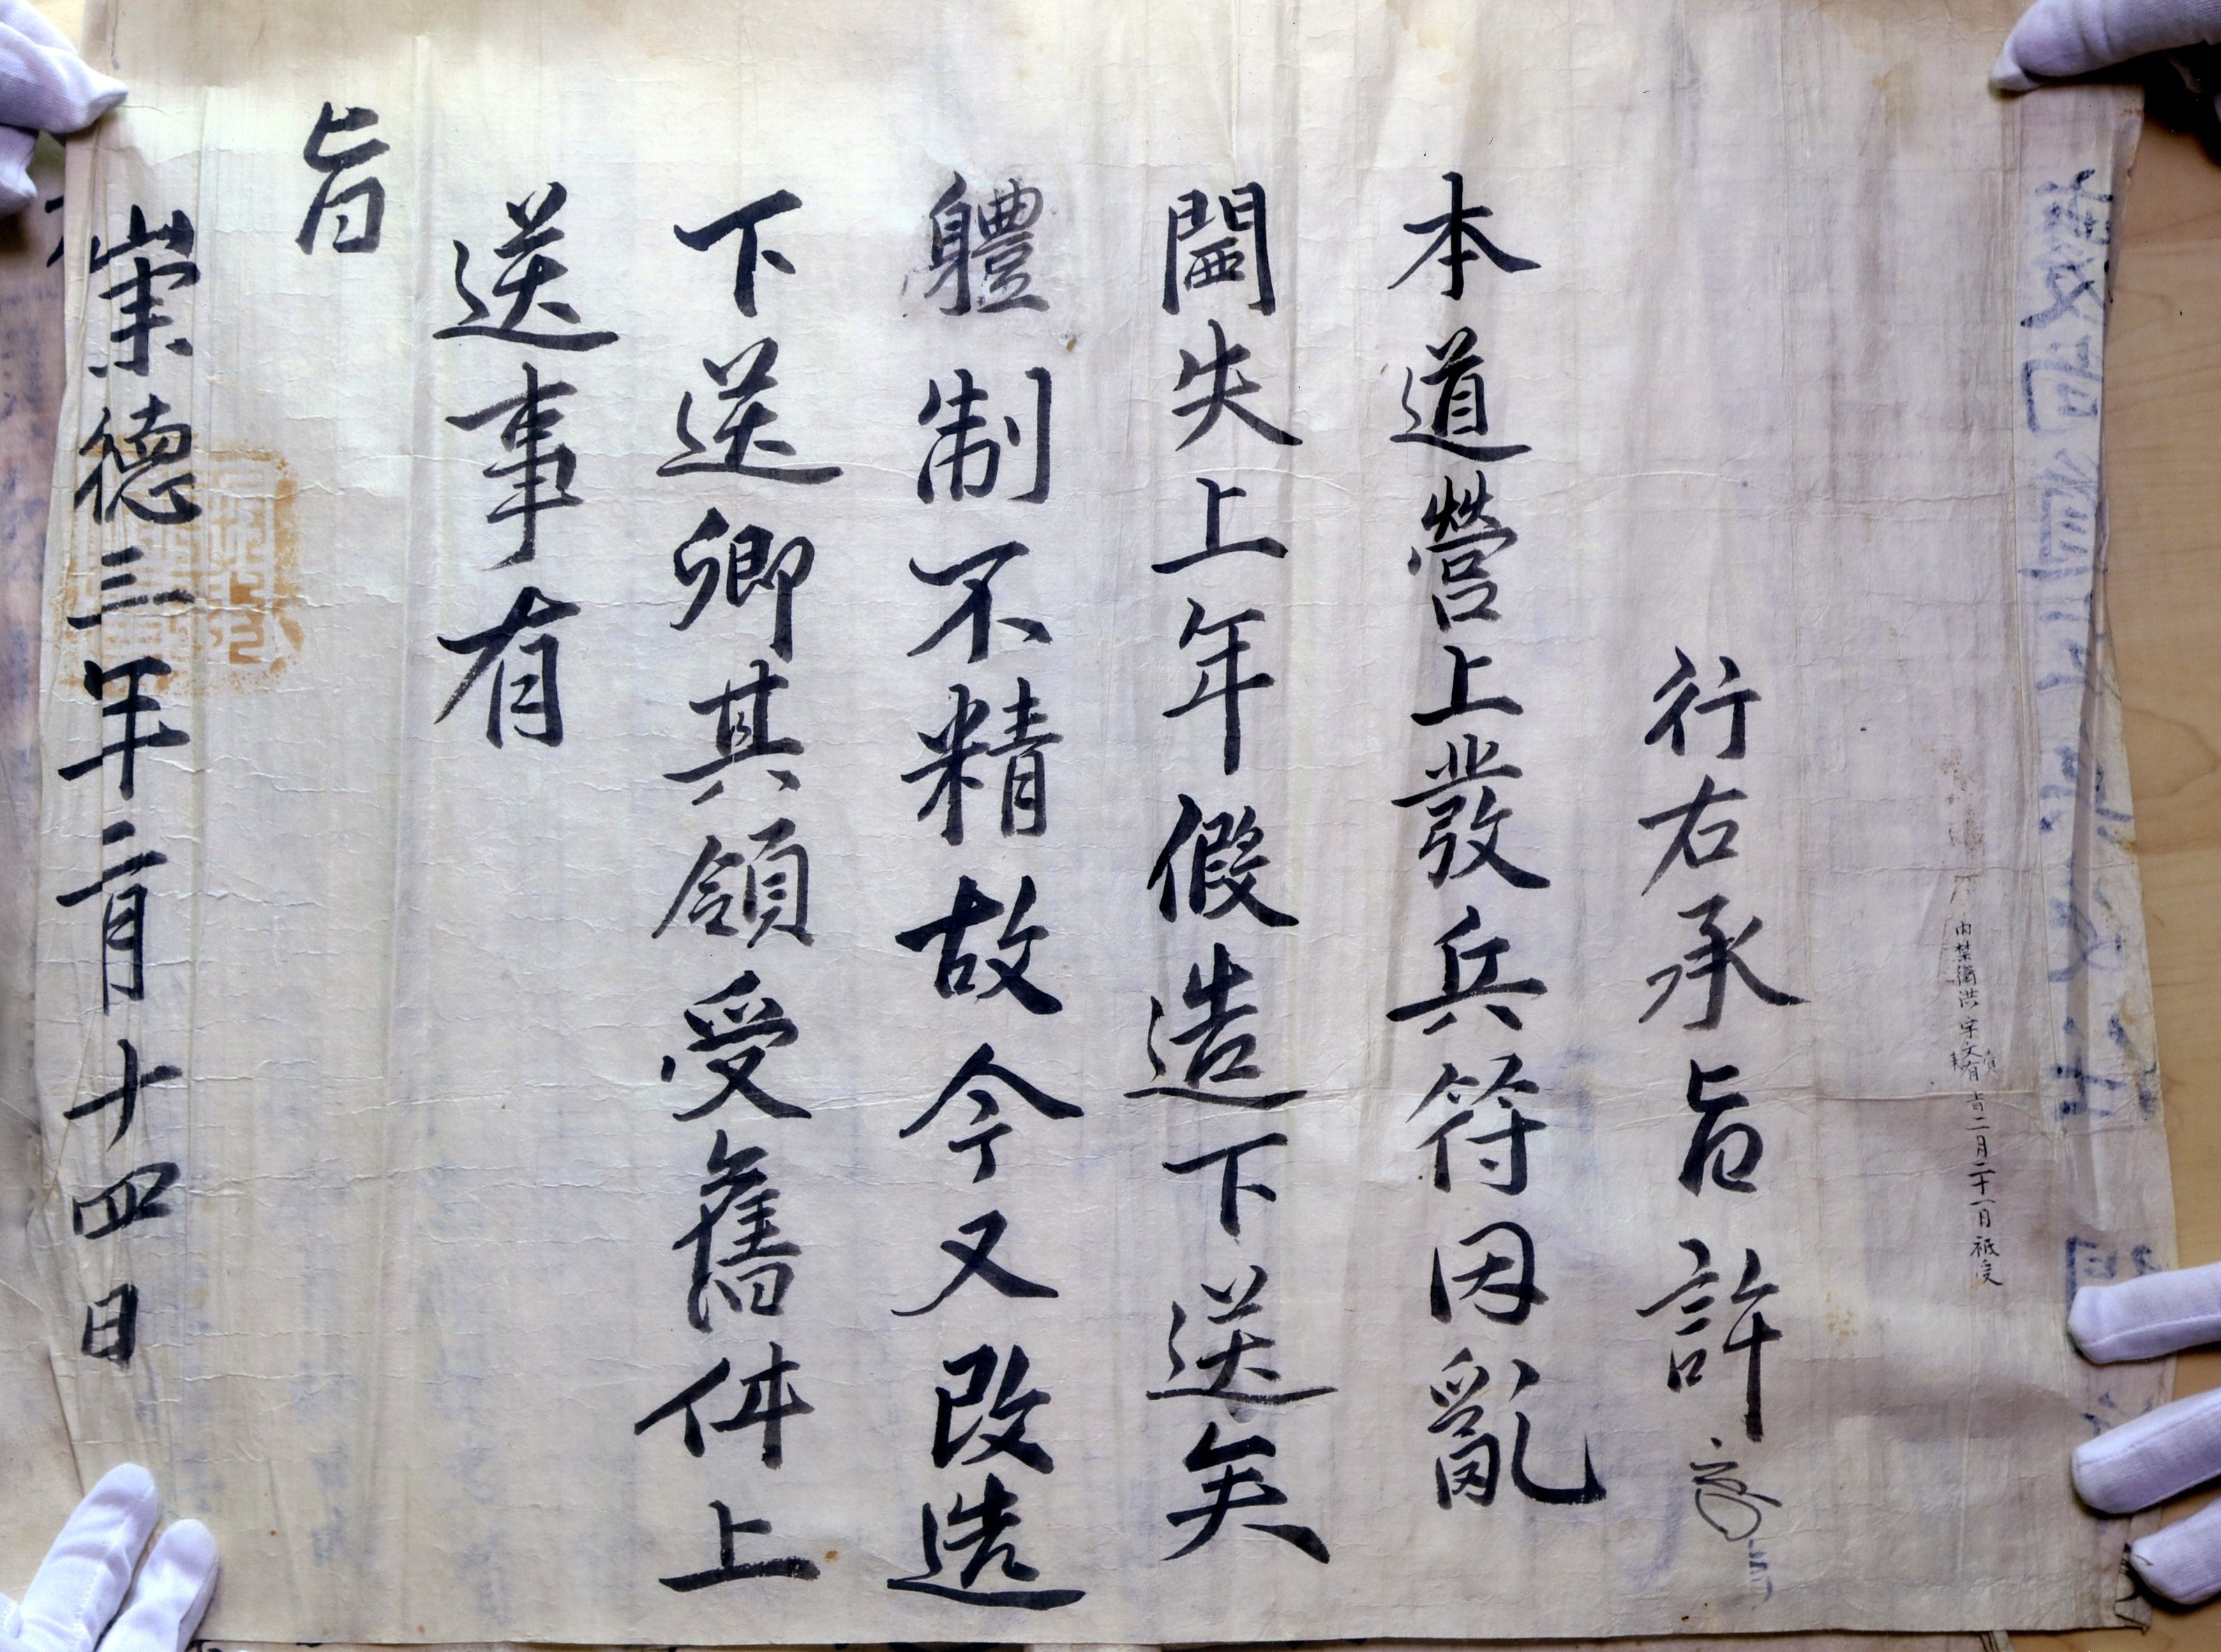 內禁衛洪宇文有旨二月二十一日祗受
行右承旨許
本道營上發兵符因亂
閪失上年假造下送矣
體制不精故今又改造
下送卿其領受舊件上
送事有
旨
崇德三年二月十四日